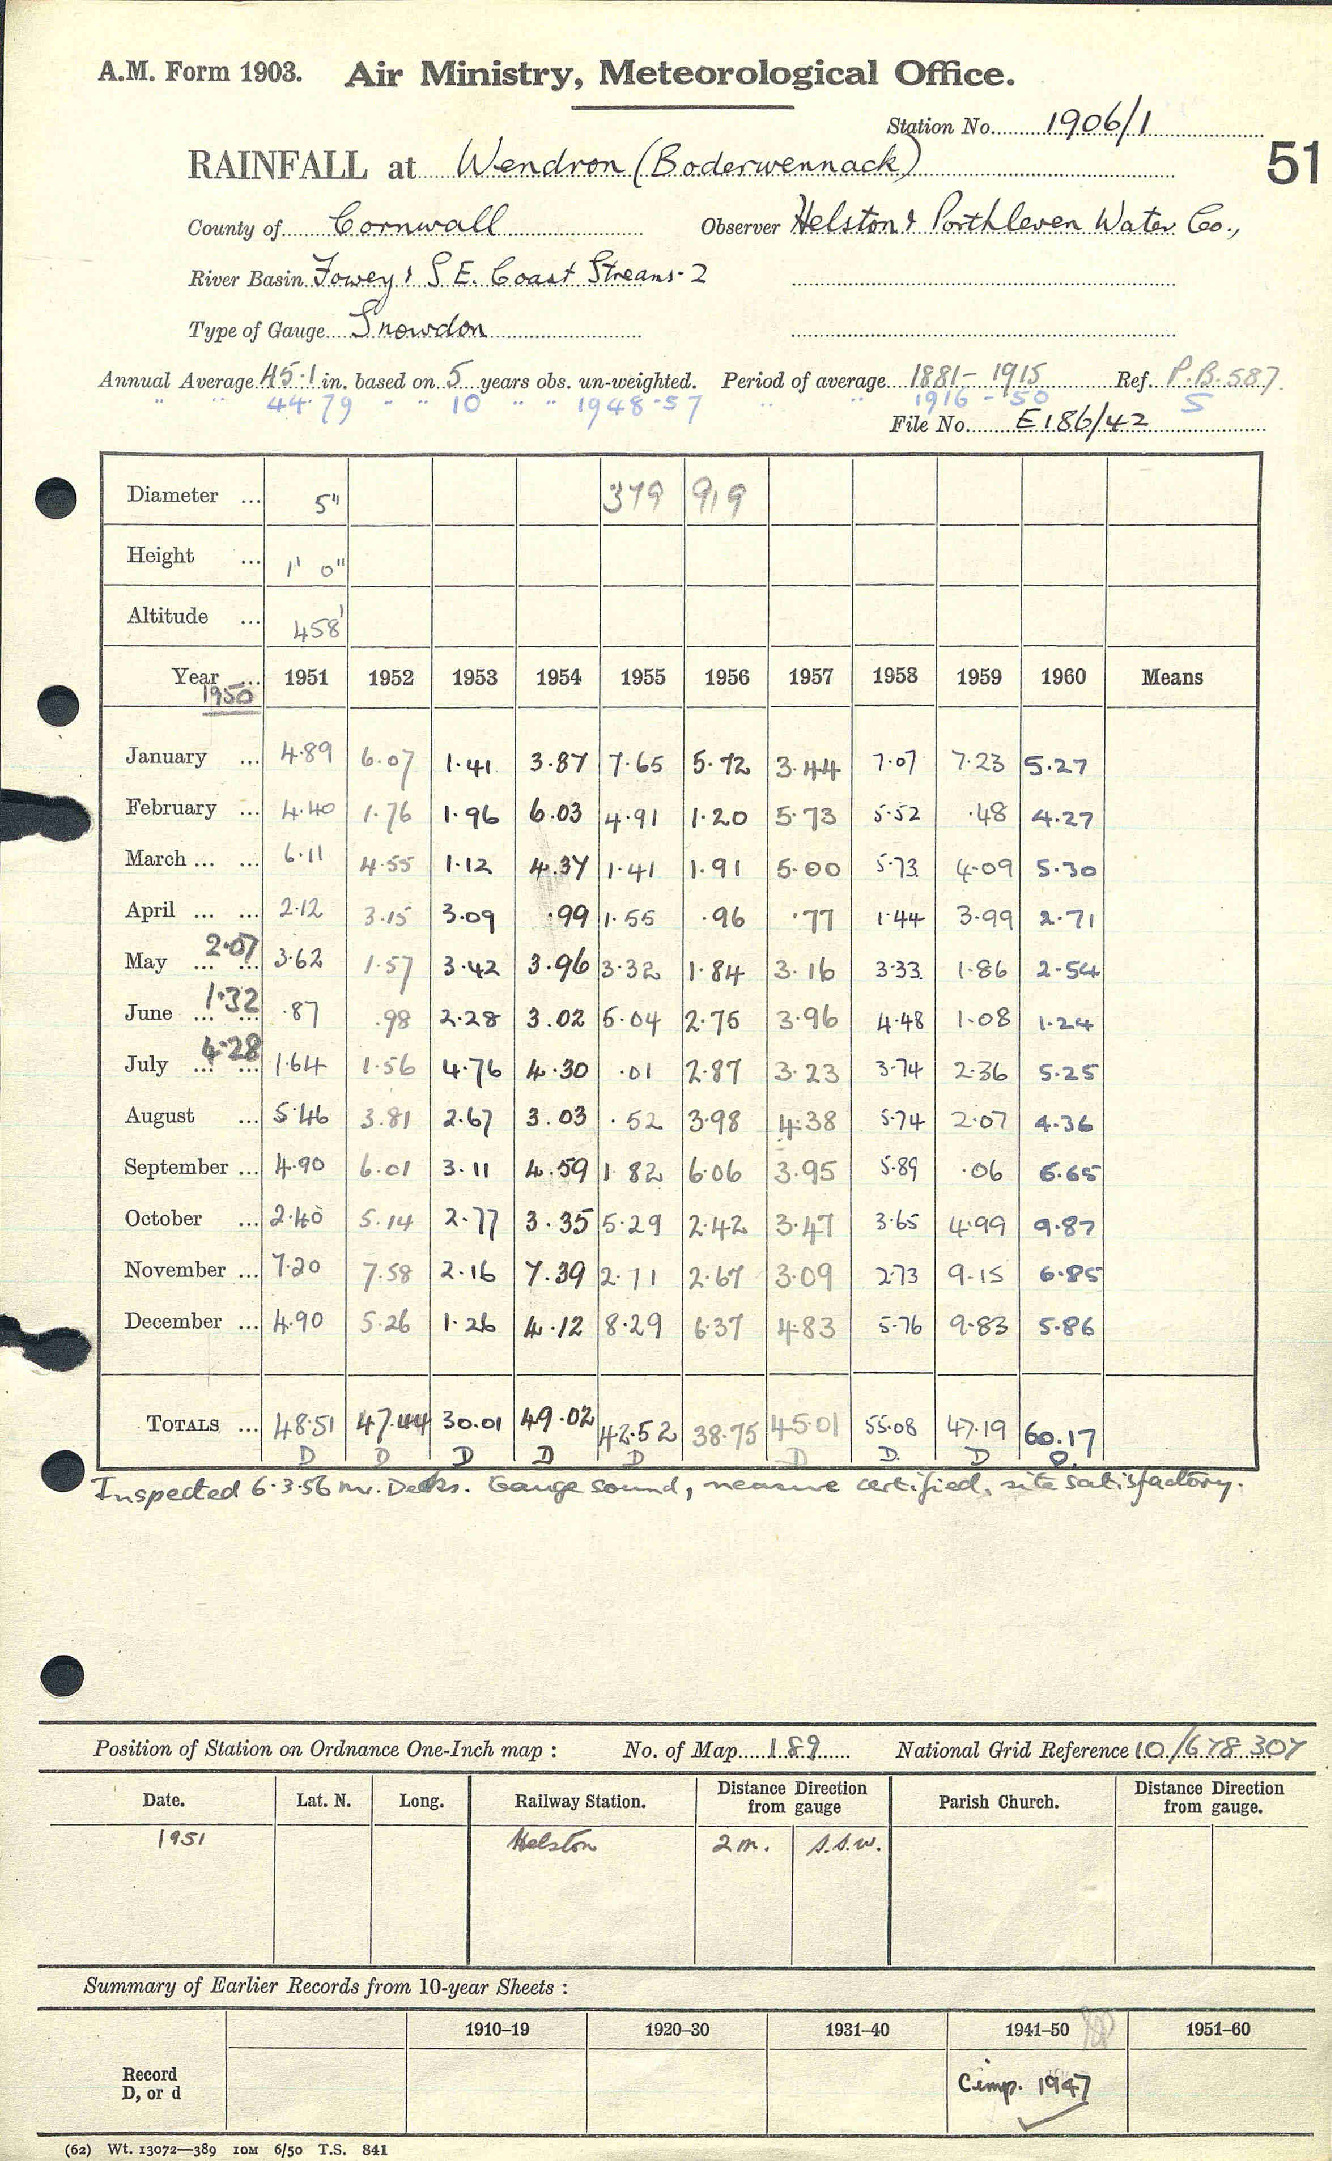 A.M. Form 1903. Air Ministry, Meteorological Office.
Station No. 1906/1
RAINFALL at Wendron (Boderwennack)
51
County of Cornwall Observer Helston & Porthleven Water Co.,
River Basin Fowey & S.E. Coast Streams-2
Type of Gauge Snowdon
Annual Average 45.1 in. based on 5 years obs. un-weighted. Period of average 1881-1915 Ref. P.B.587
" " 44.79 " " 10 " " 1948-57 " " 1916-50 S
File No. E186/42
Diameter ... 5" 379 919
Height ... 1' 0"
Altitude ... 458'
Year ... 1951 1952 1953 1954 1955 1956 1957 1958 1959 1960 Means
1950
January ... 4.89 6.07 1.41 3.87 7.65 5.72 3.44 7.07 7.23 5.27
February ... 4.40 1.76 1.96 6.03 4.91 1.20 5.73 5.52 .48 4.27
March ... ... 6.11 4.55 1.12 4.37 1.41 1.91 5.00 5.73 4.09 5.30
April ... ... 2.12 3.15 3.09 .99 1.55 .96 .77 1.44 3.99 2.71
May ... ... 2.07 3.62 1.57 3.42 3.96 3.32 1.84 3.16 3.33 1.86 2.54
June ... ... 1.32 .87 .98 2.28 3.02 5.04 2.75 3.96 4.48 1.08 1.24
July ... ... 4.28 1.64 1.56 4.76 4.30 .01 2.87 3.23 3.74 2.36 5.25
August ... 5.46 3.81 2.67 3.03 .52 3.98 4.38 5.74 2.07 4.36
September ... 4.90 6.01 3.11 4.59 1.82 6.06 3.95 5.89 .06 6.65
October ... 2.40 5.14 2.77 3.35 5.29 2.42 3.47 3.65 4.99 9.87
November ... 7.20 7.58 2.16 7.39 2.71 2.67 3.09 2.73 9.15 6.85
December ... 4.90 5.26 1.26 4.12 8.29 6.37 4.83 5.76 9.83 5.86
TOTALS ... 48.51 47.44 30.01 49.02 42.52 38.75 45.01 55.08 47.19 60.17
D D D D D D D. D D.
Inspected 6.3.56 Mr. Decks. Gauge sound, measure certified, site satisfactory.
Position of Station on Ordnance One-Inch map : No. of Map 189 National Grid Reference 10/678307
Date. Lat. N. Long. Railway Station. Distance Direction from gauge Parish Church. Distance Direction from gauge.
1951 Helston 2 m. S.S.W.
Summary of Earlier Records from 10-year Sheets :
1910-19 1920-30 1931-40 1941-50 1951-60
Record D, or d Comp. 1947
(62) Wt. 13072—389 10M 6/50 T.S. 841